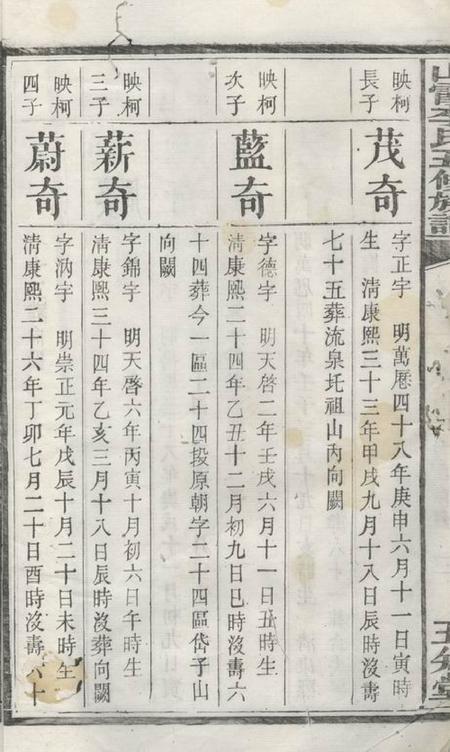 氏五修族譜
映柯
長子
茂奇
字正宇 明萬厯四十八年庚申六月十一日寅時
生 清康熙三十三年甲戌九月十八日辰時沒壽
七十五葬流泉圫祖山丙向闕
映柯
次子
藍奇
字德宇 明天啓二年壬戌六月十一日丑時生
清康熙二十四年乙丑十二月初九日巳時沒壽六
十四葬今一區二十四段原朝字二十四區岱子山
向闕
映柯
三子
薪奇
字錦宇 明天啓六年丙寅十月初六日午時生
清康熙三十四年乙亥三月十八日辰時沒葬向闕
映柯
四子
蔚奇
字汭宇 明崇正元年戊辰十月二十日未時生
清康熙二十六年丁卯七月二十日酉時沒壽六十